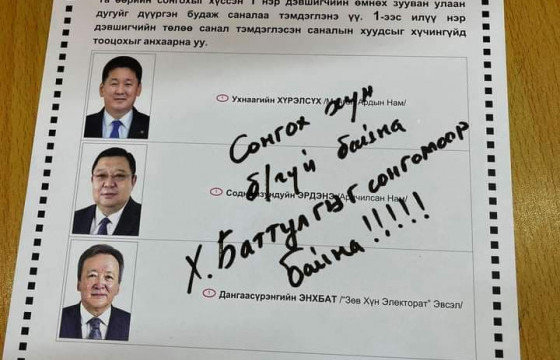 Та өөрийн сонгохыг хүссэн 1 нэр дэвшигчийн өмнөх зууван улаан
дугуйг дүүргэн будаж саналаа тэмдэглэнэ үү. 1-ээс илүү нэр
дэвшигчийн төлөө санал тэмдэглэсэн саналын хуудсыг хүчингүйд
тооцохыг анхаарна уу.
Ухнаагийн ХҮРЭЛСҮХ /Ардын Нам/
Сонгох хүн
б/гүй байна
ЭРДЭНЭ Нам/
Х.Баттулгыг сонгомоор
байна!!!!!
Дангаасүрэнгийн ЭНХБАТ /"Зөв Хүн Электорат" Эвсэл/